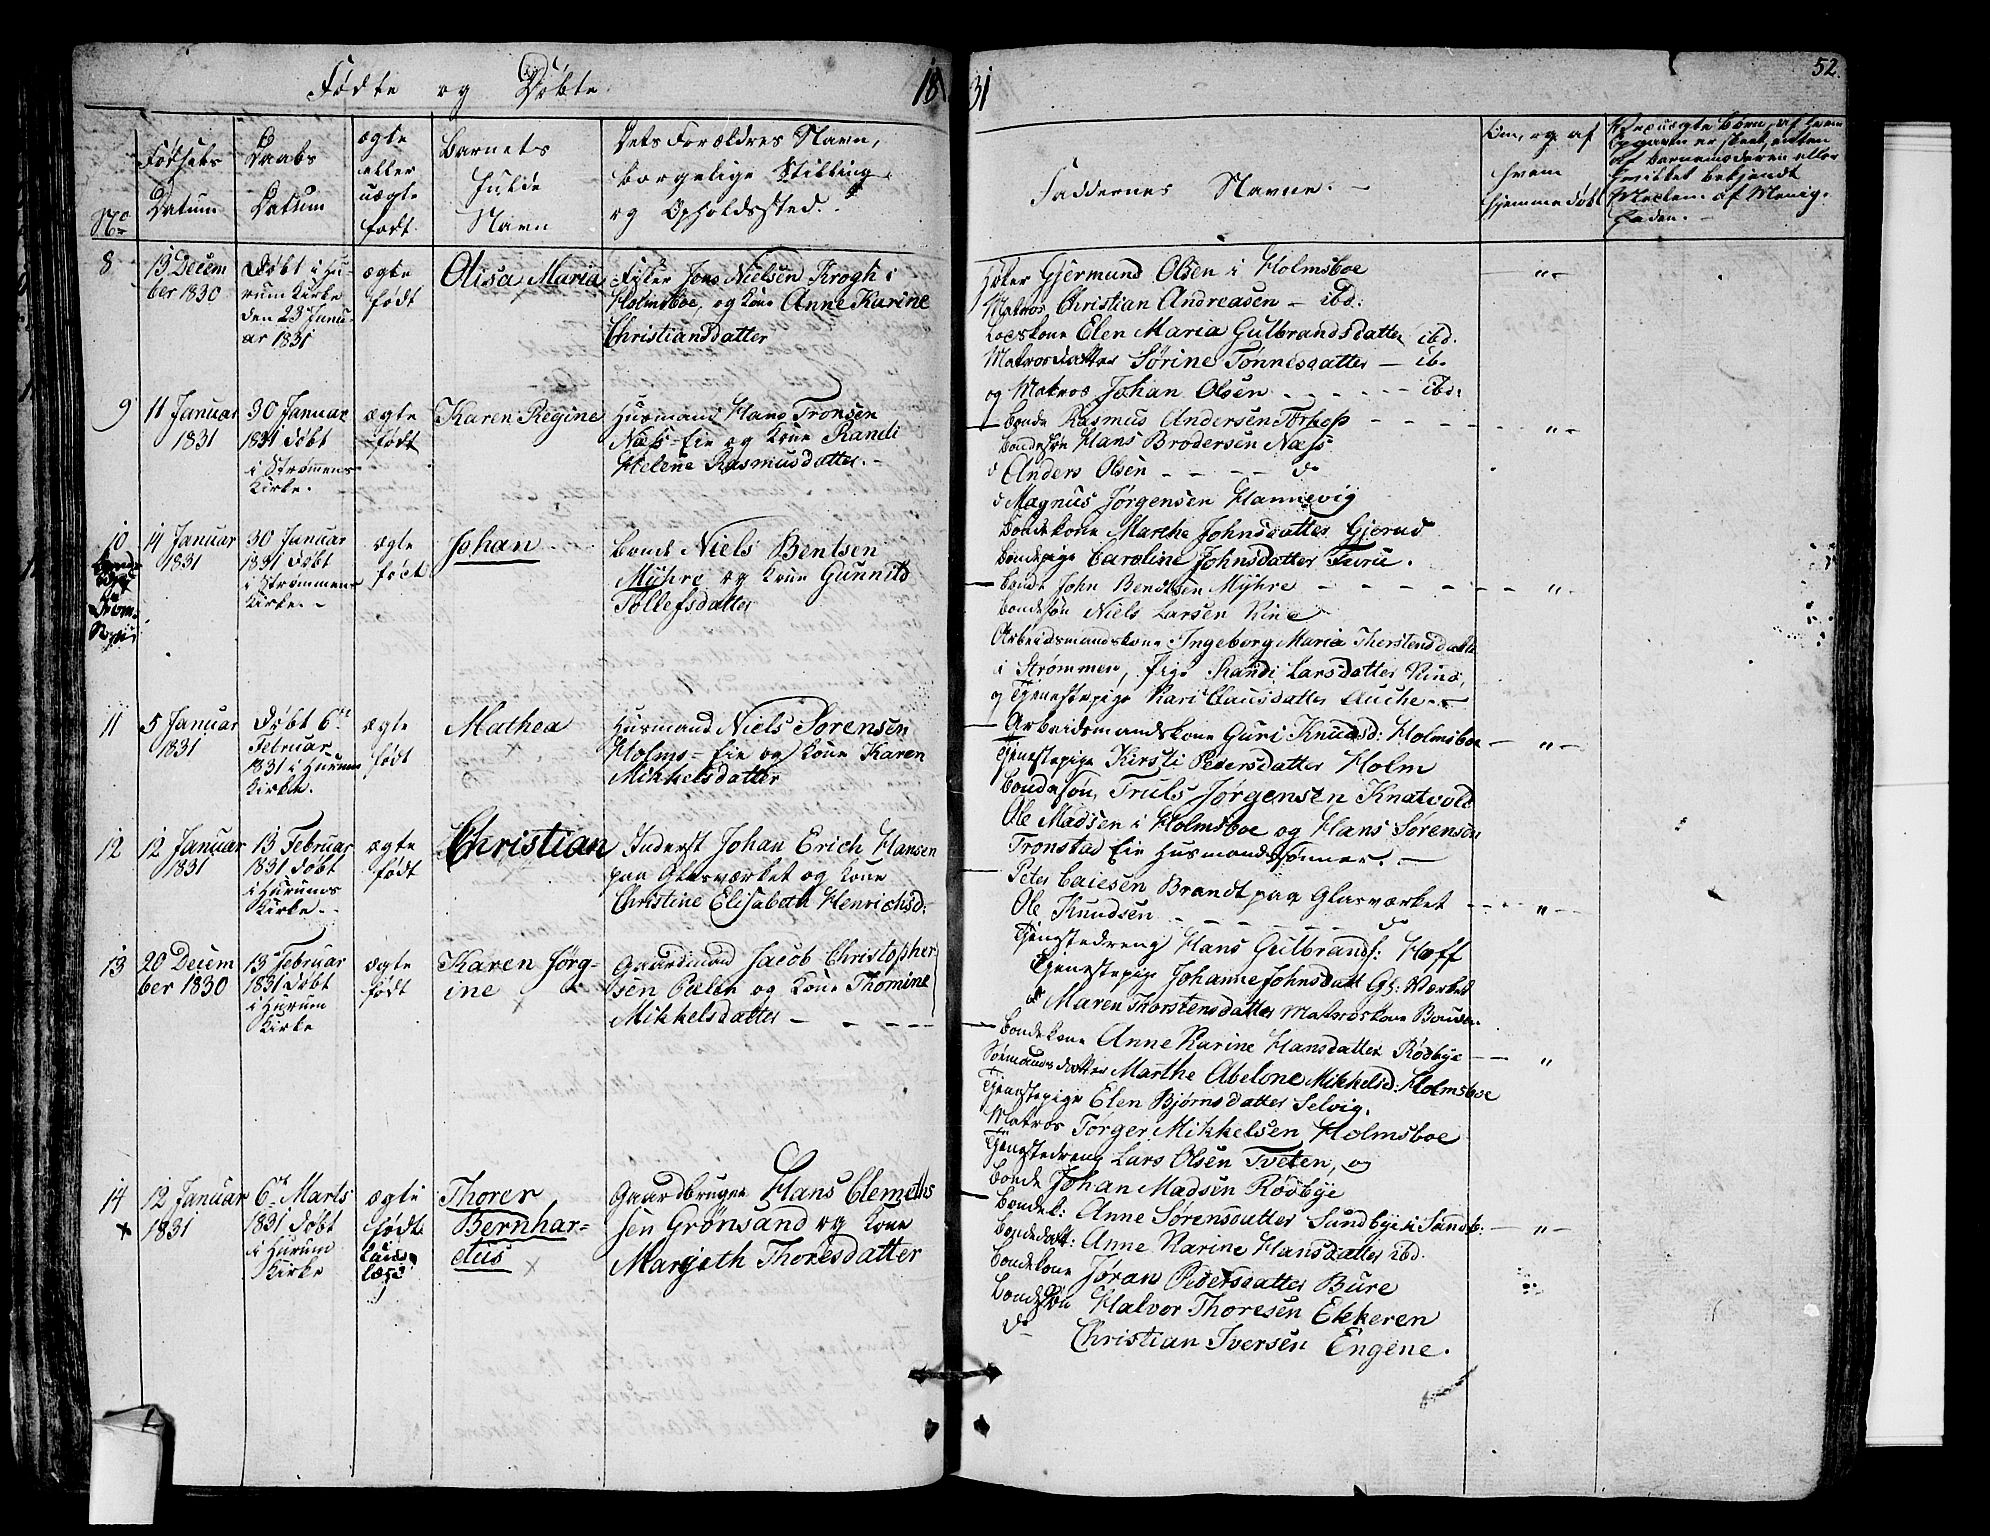 Fødte og Døbte
18
31
52
No
Fødsels Datum
Daabs Datum
ægte eller uægte født
Barnets fulde Navn
Dets Forældres Navn,
borgelige Stilling
og Opholdssted.
Faddernes Navne.
Om, og af
hvem
hjemmedøbt
8
13 Decem
ber 1830
Døbt i Hu-
rum Kirke
den 23 Janu-
ar 1831
ægte
født
Olisa Maria
Fisker Jens Nielsen Krogh i
Holmsboe, og Kone Anne Karine
Christiansdatter
Gjermund Olsen i Holmsboe
Matros Christian Andreasen - ibd:
Elen Maria Gulbrandsdatter ibd.
Matrosdatter Sørine Tonnesdatter - ib.
og Matros Johan Olsen - - - - ibd:
9
11 Januar
1831
30 Januar
1831 døbt
i Strømens
Kirke.
ægte
født
Karen Regine
Husmand Hans Tronsen
Næss-Eie og Kone Randi
Helene Rasmusdatter. -
Bonde Rasmus Andersen
Bondesøn Hans Brodersen Næss
do Anders Olsen - - - - do
do Magnus Jørgensen Hannevig
Bondekone Marthe Johnsdatter Gjerud
Bondepige Caroline Johnsdatter Furu.
10
14 Januar
1831
30 Januar
1831 døbt
i Strømmens
Kirke. -
ægte
født
Johan
Bonde Niels Bentsen
Myhre og Kone Gunnild
Tollefsdatter
Bonde John Bendtsen Myhre
Bondesøn Niels Larsen Rine
Arbeidsmandskone Ingeborg Maria Thorstensdatter
i Strømmen, Pige Randi Larsdatter Rine,
og Tjenestepige Kari Clausdatter Auche. -
11
5 Januar
1831
Døbt 6te
Februar
1831 i Hurum
Kirke.
ægte
født
Mathea
Husmand Niels Sørensen
Holms-Eie og Kone Karen
Mikkelsdatter
Arbeidsmandskone Guri Knudsd: Holmsboe
Tjenestepige Kirsti Pedersdatter Holm
Bondesøn, Truls Jørgensen Knatvold
Ole Madsen i Holmsboe og Hans Sørensen
Tronstad Eie Husmandssønner. -
12
12 Januar
1831
13 Februar
1831 døbt
i Hurums
Kirke. -
ægte
født
Christian
Inderst Johan Erich Hansen
paa Glasværket og Kone
Christine Elisabeth Henrichsd:
Peter Caiesen Brandt paa Glasværket
Ole Knudsen - - - - do
Tjenestedreng Hans Gulbrands: Hoff
Tjenestepige Johanne Johnsdatt Gl: Værket
do Maren Thorstensdatter Matroskone
13
20 Decem
ber 1830
13 Februar
1831 døbt
i Hurum
Kirke
ægte
født
Karen Jørg-
ine
Gaardmand Jacob Christopher
sen og Kone Thomine
Mikkelsdatter
Bondekone Anne Karine Hansdatter Rødbye
Marthe Abelone Mikkelsd: Holmsboe
Tjenestepige Elen Bjørnsdatter Selvig.
Matros Torger Mikkelsen Holmsboe
Tjenestedreng Lars Olsen Tveten, og
Bonde Johan Madsen Rødbye
14
12 Januar
1831
6te Marts
1831 døbt
i Hurum
Kirke
ægte
født
Thorer
Bernhar-
dus
Gaardbruger Hans Clemets
sen Grønsand og Kone
Margeth Thoresdatter
Bondek: Anne Sørensdatter Sundbye i Sandb:
Bondedatt: Anne Karine Hansdatter ibd.
Bondekone Jøran Pedersdatter Bure
Bondesøn Halvor Thoresen Ekkeren
do Christian Iversen Engene.